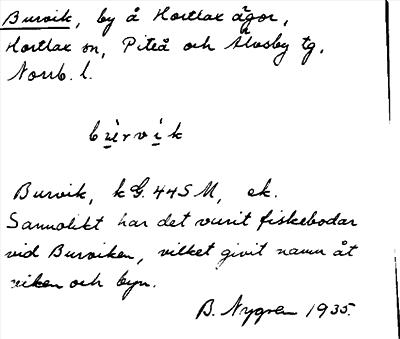 Burvik, by å Hortlax ägor,
Hortlax sn, Piteå och Älvsby tg,
Norrb. l.
bu̲rvi̲k
Burvik, k G. 44 S M, ek.
Sannolikt har det varit fiskebodar
vid Burviken, vilket givit namn åt
viken och byn.
B. Nygren 1935.